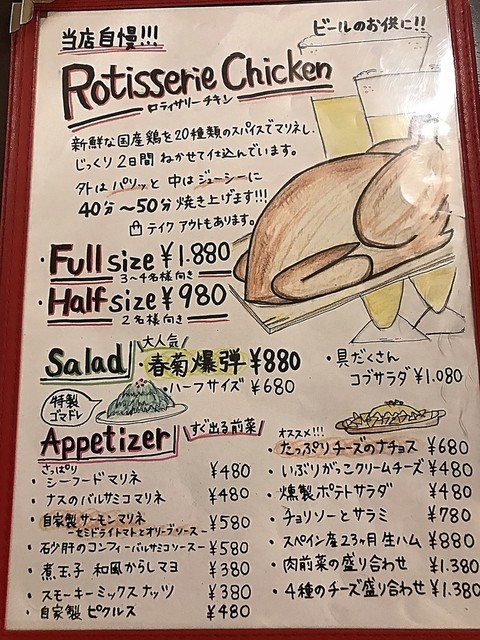 当店自慢!!!
ビールのお供に!!
Rotisserie Chicken
ロティサリーチキン
新鮮な国産鶏を20種類のスパイスでマリネし、
じっくり2日間 ねかせて仕込んでいます。
外は パリッと 中は ジューシーに
40分〜50分 焼き上げます!!!
テイクアウトもあります。
・Full size ¥1.880
3〜4名様向き
・Half size ¥980
2名様向き
Salad
大人気
・春菊爆弾 ¥880
・ハーフサイズ ¥680
・具だくさん
コブサラダ ¥1.080
特製
ゴマドレ
Appetizer
すぐ出る前菜
さっぱり
・シーフードマリネ ¥480
・ナスのバルサミコマリネ ¥480
・自家製サーモンマリネ
-セミドライトマトとオリーブソース- ¥580
・砂肝のコンフィーバルサミコソース- ¥580
・煮玉子 和風からしマヨ ¥380
・スモーキーミックスナッツ ¥380
・自家製 ピクルス ¥480
オススメ!!!
・たっぷりチーズのナチョス ¥680
・いぶりがっこクリームチーズ ¥480
・燻製ポテトサラダ ¥480
・チョリソーとサラミ ¥780
・スペイン産23ヶ月生ハム ¥880
・肉前菜の盛り合わせ ¥1.380
・4種のチーズ盛り合わせ ¥1.380